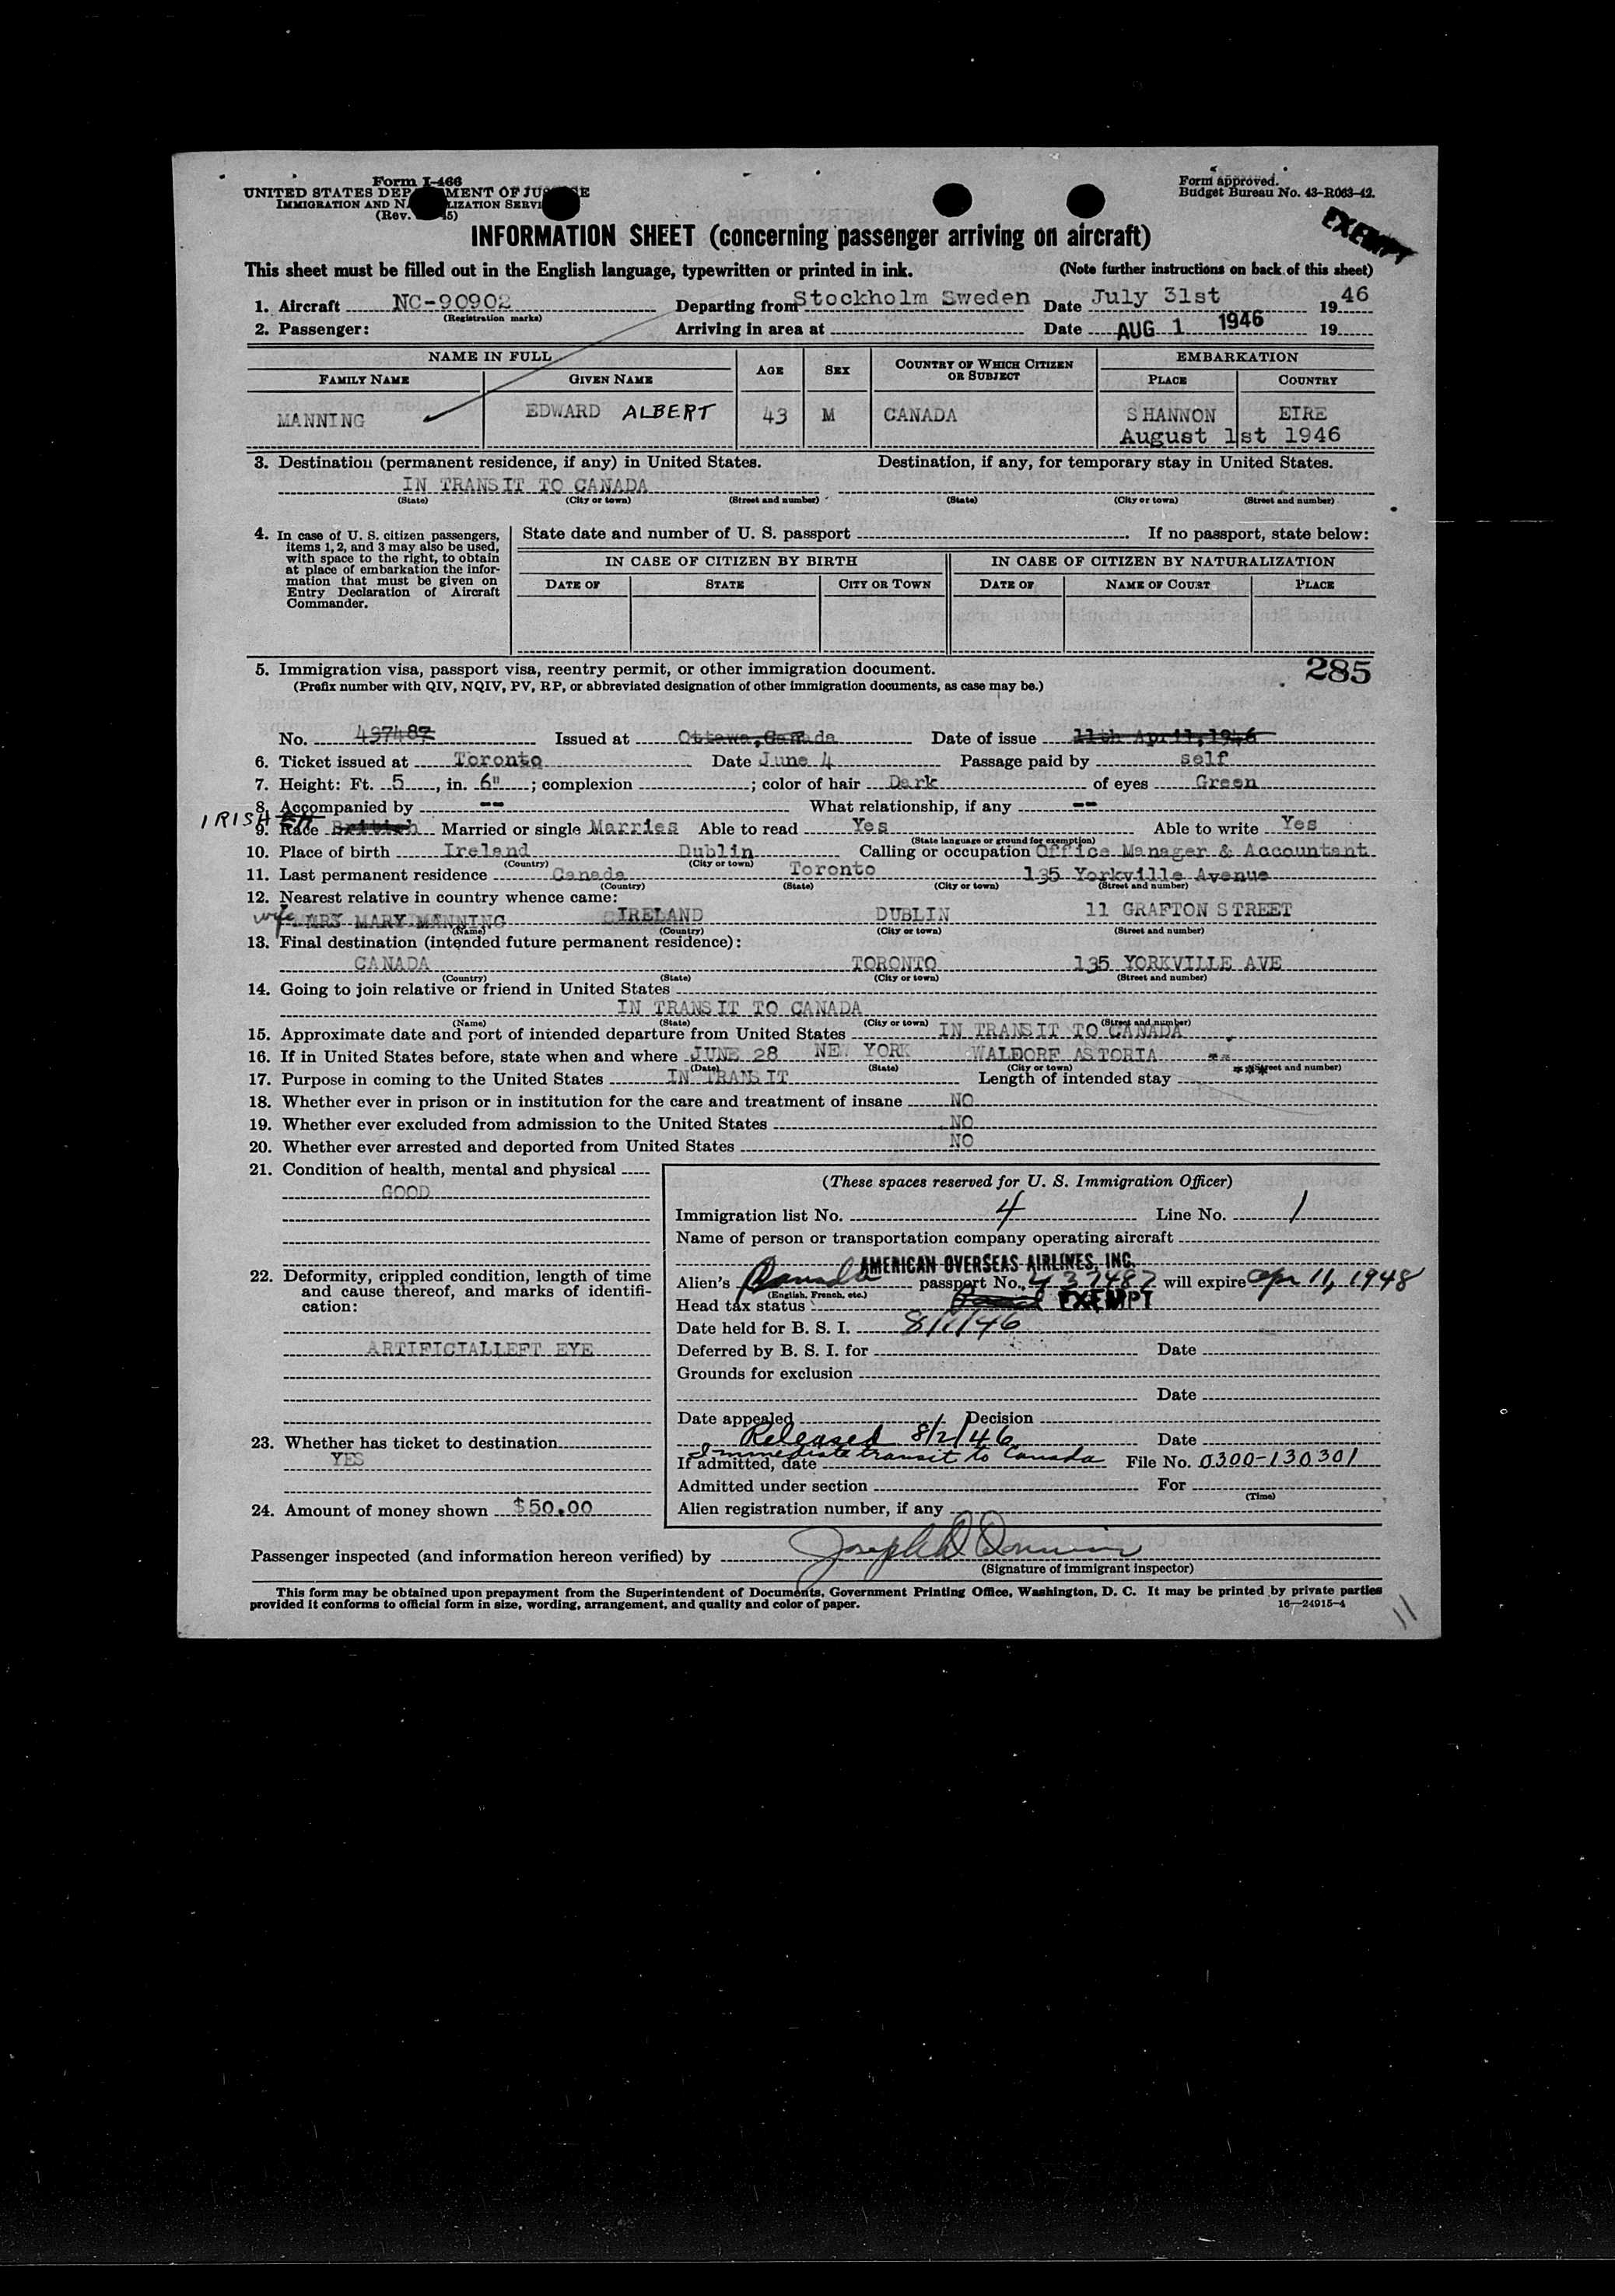 Form I-466
UNITED STATES DEPARTMENT OF JUSTICE
IMMIGRATION AND NATURALIZATION SERVICE
(Rev. 45)
Form approved.
Budget Bureau No. 43-R063-42.
EXEMPT
INFORMATION SHEET (concerning passenger arriving on aircraft)
This sheet must be filled out in the English language, typewritten or printed in ink. (Note further instructions on back of this sheet)
1. Aircraft NC-90902 Departing from Stockholm Sweden Date July 31st 1946
(Registration marks)
2. Passenger: Arriving in area at Date AUG 1 1946 19
NAME IN FULL AGE SEX COUNTRY OF WHICH CITIZEN OR SUBJECT EMBARKATION
FAMILY NAME GIVEN NAME PLACE COUNTRY
MANNING EDWARD ALBERT 43 M CANADA SHANNON EIRE
August 1st 1946
3. Destination (permanent residence, if any) in United States. Destination, if any, for temporary stay in United States.
IN TRANSIT TO CANADA
(State) (City or town) (Street and number) (State) (City or town) (Street and number)
4. In case of U. S. citizen passengers, items 1, 2, and 3 may also be used, with space to the right, to obtain at place of embarkation the information that must be given on Entry Declaration of Aircraft Commander.
State date and number of U. S. passport If no passport, state below:
IN CASE OF CITIZEN BY BIRTH IN CASE OF CITIZEN BY NATURALIZATION
DATE OF STATE CITY OR TOWN DATE OF NAME OF COURT PLACE
5. Immigration visa, passport visa, reentry permit, or other immigration document. 285
(Prefix number with QIV, NQIV, PV, RP, or abbreviated designation of other immigration documents, as case may be.)
No. 497487 Issued at Ottawa, Canada Date of issue 11th April, 1946
6. Ticket issued at Toronto Date June 4 Passage paid by self
7. Height: Ft. 5, in. 6"; complexion ; color of hair Dark of eyes Green
8. Accompanied by -- What relationship, if any --
IRISH
9. Race British Married or single Marries Able to read Yes Able to write Yes
(State language or ground for exemption)
10. Place of birth Ireland Dublin Calling or occupation Office Manager & Accountant
(Country) (City or town)
11. Last permanent residence Canada Toronto 135 Yorkville Avenue
(Country) (State) (City or town) (Street and number)
12. Nearest relative in country whence came:
wife MRS MARY MANNING IRELAND DUBLIN 11 GRAFTON STREET
(Name) (Country) (City or town) (Street and number)
13. Final destination (intended future permanent residence):
CANADA TORONTO 135 YORKVILLE AVE
(Country) (State) (City or town) (Street and number)
14. Going to join relative or friend in United States
IN TRANSIT TO CANADA
(Name) (State) (City or town) (Street and number)
15. Approximate date and port of intended departure from United States IN TRANSIT TO CANADA
16. If in United States before, state when and where JUNE 28 NEW YORK WALDORF ASTORIA
(Date) (State) (City or town) (Street and number)
17. Purpose in coming to the United States IN TRANSIT Length of intended stay
18. Whether ever in prison or in institution for the care and treatment of insane NO
19. Whether ever excluded from admission to the United States NO
20. Whether ever arrested and deported from United States NO
21. Condition of health, mental and physical
GOOD
22. Deformity, crippled condition, length of time and cause thereof, and marks of identification:
ARTIFICIALLEFT EYE
23. Whether has ticket to destination
YES
24. Amount of money shown $50.00
(These spaces reserved for U. S. Immigration Officer)
Immigration list No. 4 Line No. 1
Name of person or transportation company operating aircraft
AMERICAN OVERSEAS AIRLINES, INC.
Alien's Canada passport No. 437487 will expire Apr 11, 1948
(English, French, etc.)
Head tax status EXEMPT
Date held for B. S. I. 8/1/46
Deferred by B. S. I. for Date
Grounds for exclusion
Date
Date appealed Decision
Released 8/2/46 Date
Immediate transit to Canada
If admitted, date File No. 0300-130301
Admitted under section For
(Time)
Alien registration number, if any
Passenger inspected (and information hereon verified) by
(Signature of immigrant inspector)
This form may be obtained upon prepayment from the Superintendent of Documents, Government Printing Office, Washington, D. C. It may be printed by private parties
provided it conforms to official form in size, wording, arrangement, and quality and color of paper. 16—24915-4
11